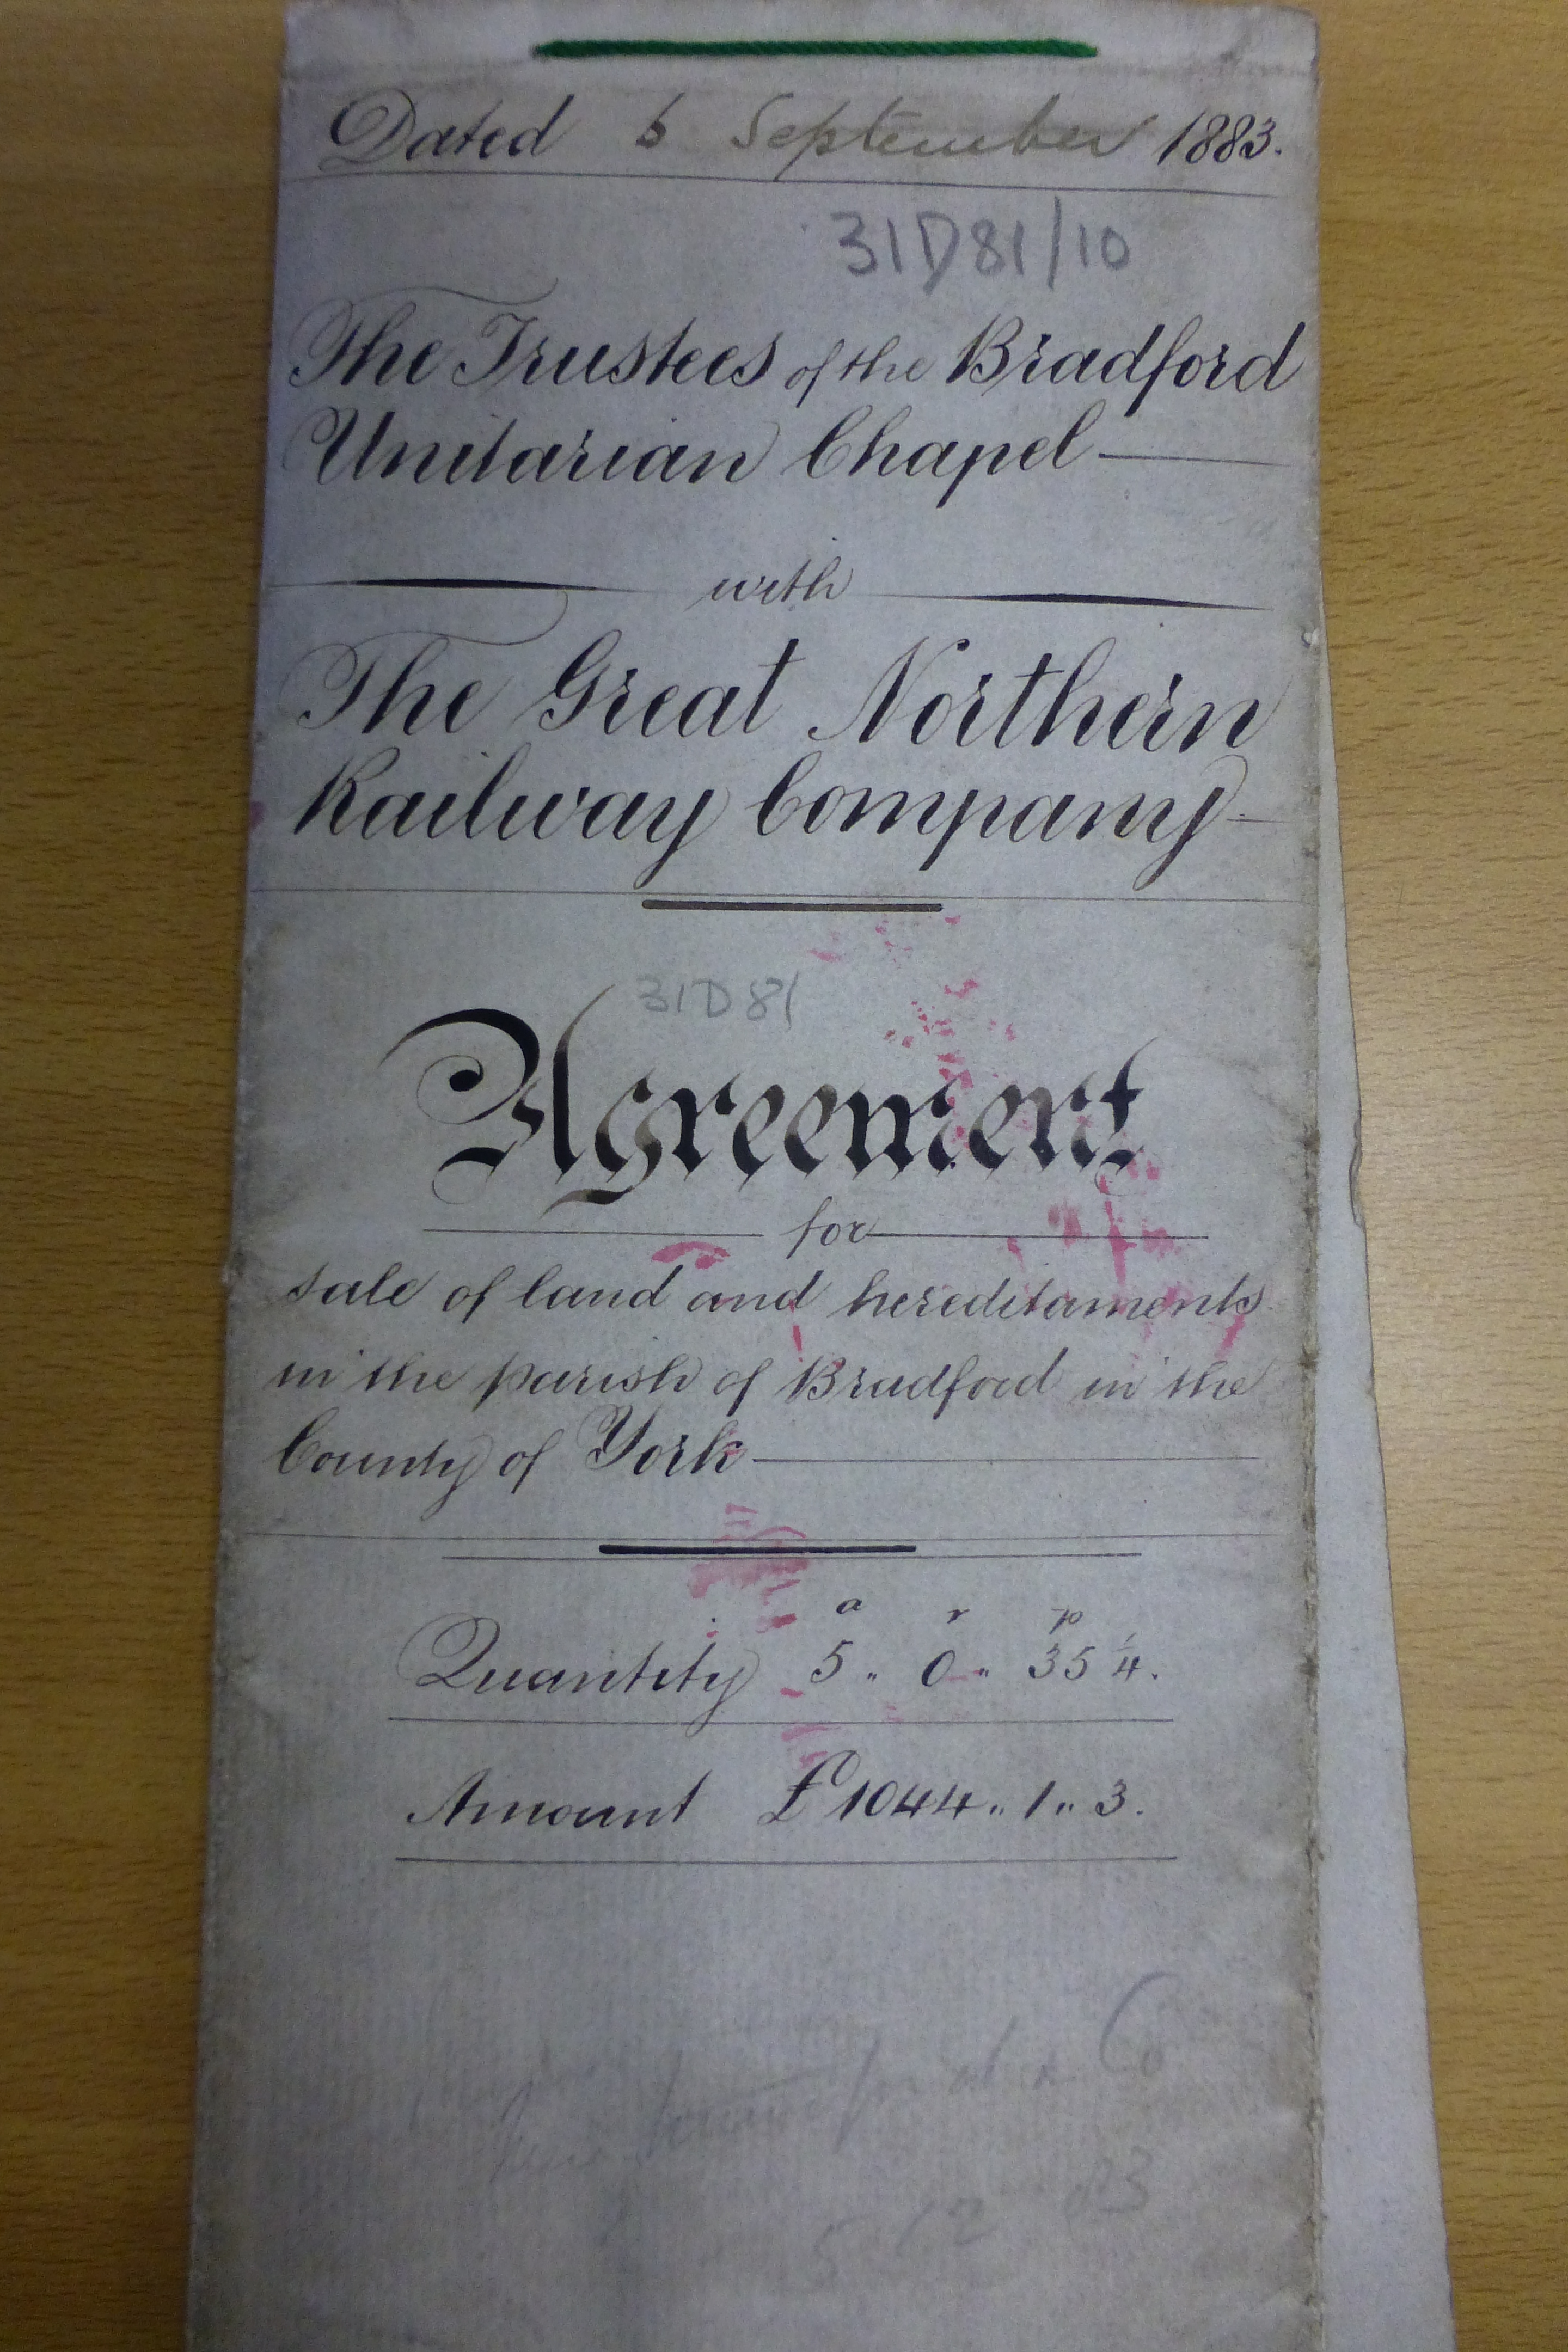 Dated 6 September 1883.
31D81/10
The Trustees of the Bradford
Unitarian Chapel
with
The Great Northern
Railway Company
31D81
Agreement
for
sale of land and hereditaments
in the parish of Bradford in the
County of York
a r p
Quantity 5 „ 0 „ 35 1/4.
Amount £1044 „ 1 „ 3.